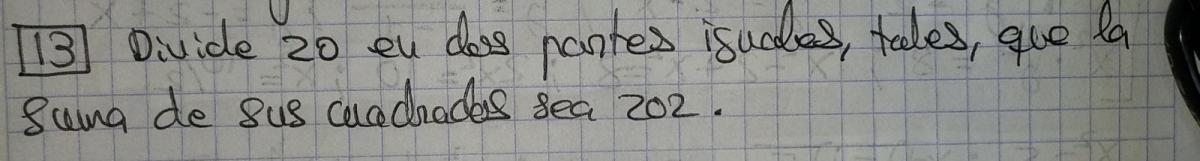 13 Divide 20 en dos partes iguales, tales, que la
suma de sus cuadrados sea 202.